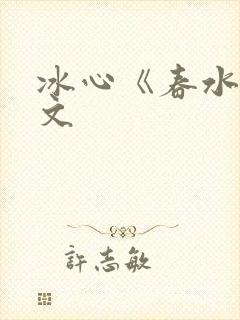 冰心《春水
文
許志敏